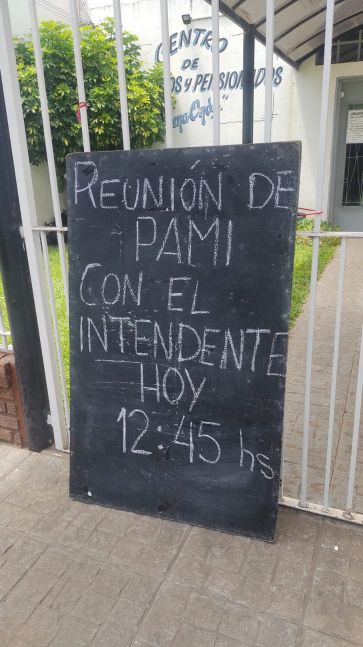 CENTRO
DE
Y PENSIONADOS
REUNIÓN DE
PAMI
CON EL
INTENDENTE
HOY
12:45 hs